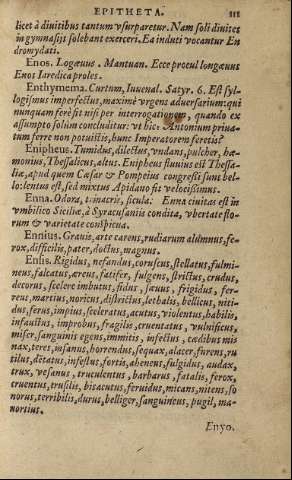 EPITHETA. 111
licet à diuitibus tantum vsurparetur. Nam soli diuites
in gymnasijs solebant exerceri. Ea induti vocantur En
dromydati.
Enos. Logæuus. Mantuan. Ecce procul longæuus
Enos Iaredica proles.
Enthymema. Curtum, Iuuenal. Satyr. 6. Est syl-
logismus imperfectus, maximè vrgens aduersarium: qui
nunquam ferè fit nisi per interrogationem, quando ex
assumpto solum concluditur: vt hîc. Antonium priua-
tum ferre non potuisti, hunc Imperatorem feretis?
Enipheus. Tumidus, dilectus, vndans, pulcher, hæ-
monius, Thessalicus, altus. Enipheus fluuius est Thessa-
liæ, apud quem Cæsar & Pompeius congresti sunt bel-
lo: lentus est, sed mixtus Apidano fit velocissimus.
Enna. Odora, trinacris, sicula. Enna ciuitas est in
vmbilico Siciliæ, à Syracusanis condita, vbertate flo-
rum & varietate conspicua.
Ennius. Grauis, arte carens, rudiarum alumnus, fe-
rox, difficilis, pater, doctus, magnus.
Ensis. Rigidus, nefandus, coruscus, stellatus, fulmi-
neus, falcatus, æreus, fatifer, fulgens, strictus, crudus,
decorus, scelere imbutus, fidus, sæuus, frigidus, fer-
reus, martius, noricus, districtus, lethalis, bellicus, niti-
dus, ferus, impius, sceleratus, acutus, violentus, habilis,
infaustus, improbus, fragilis, cruentatus, vulnificus,
miser, sanguinis egens, immitis, infectus, cædibus mi
nax, teres, insanus, horrendus, sequax, alacer, furens, ru
tilus, dicatus, infestus, fortis, ahenens, fulgidus, audax,
trux, vesanus, truculentus, barbarus, fatalis, ferox,
cruentus, trusilis, bisacutus, feruidus, micans, nitens, so
norus, terribilis, durus, belliger, sanguineus, pugil, ma-
uortius.
Enyo.